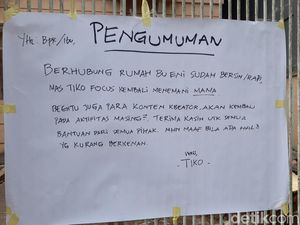 PENGUMUMAN
Yth. Bpk/Ibu,
BERHUBUNG RUMAH BU ENI SUDAH BERSIH/RAPI
MAS TIKO FOCUS KEMBALI MENEMANI MAMA
BEGITU JUGA PARA KONTEN KREATOR AKAN KEMBALI
PADA AKTIFITAS MASING². TERIMA KASIH UTK SEMUA
BANTUAN DARI SEMUA PIHAK. MHN MAAF BILA ADA HAL²
YG KURANG BERKENAN.
- TIKO -
detikcom